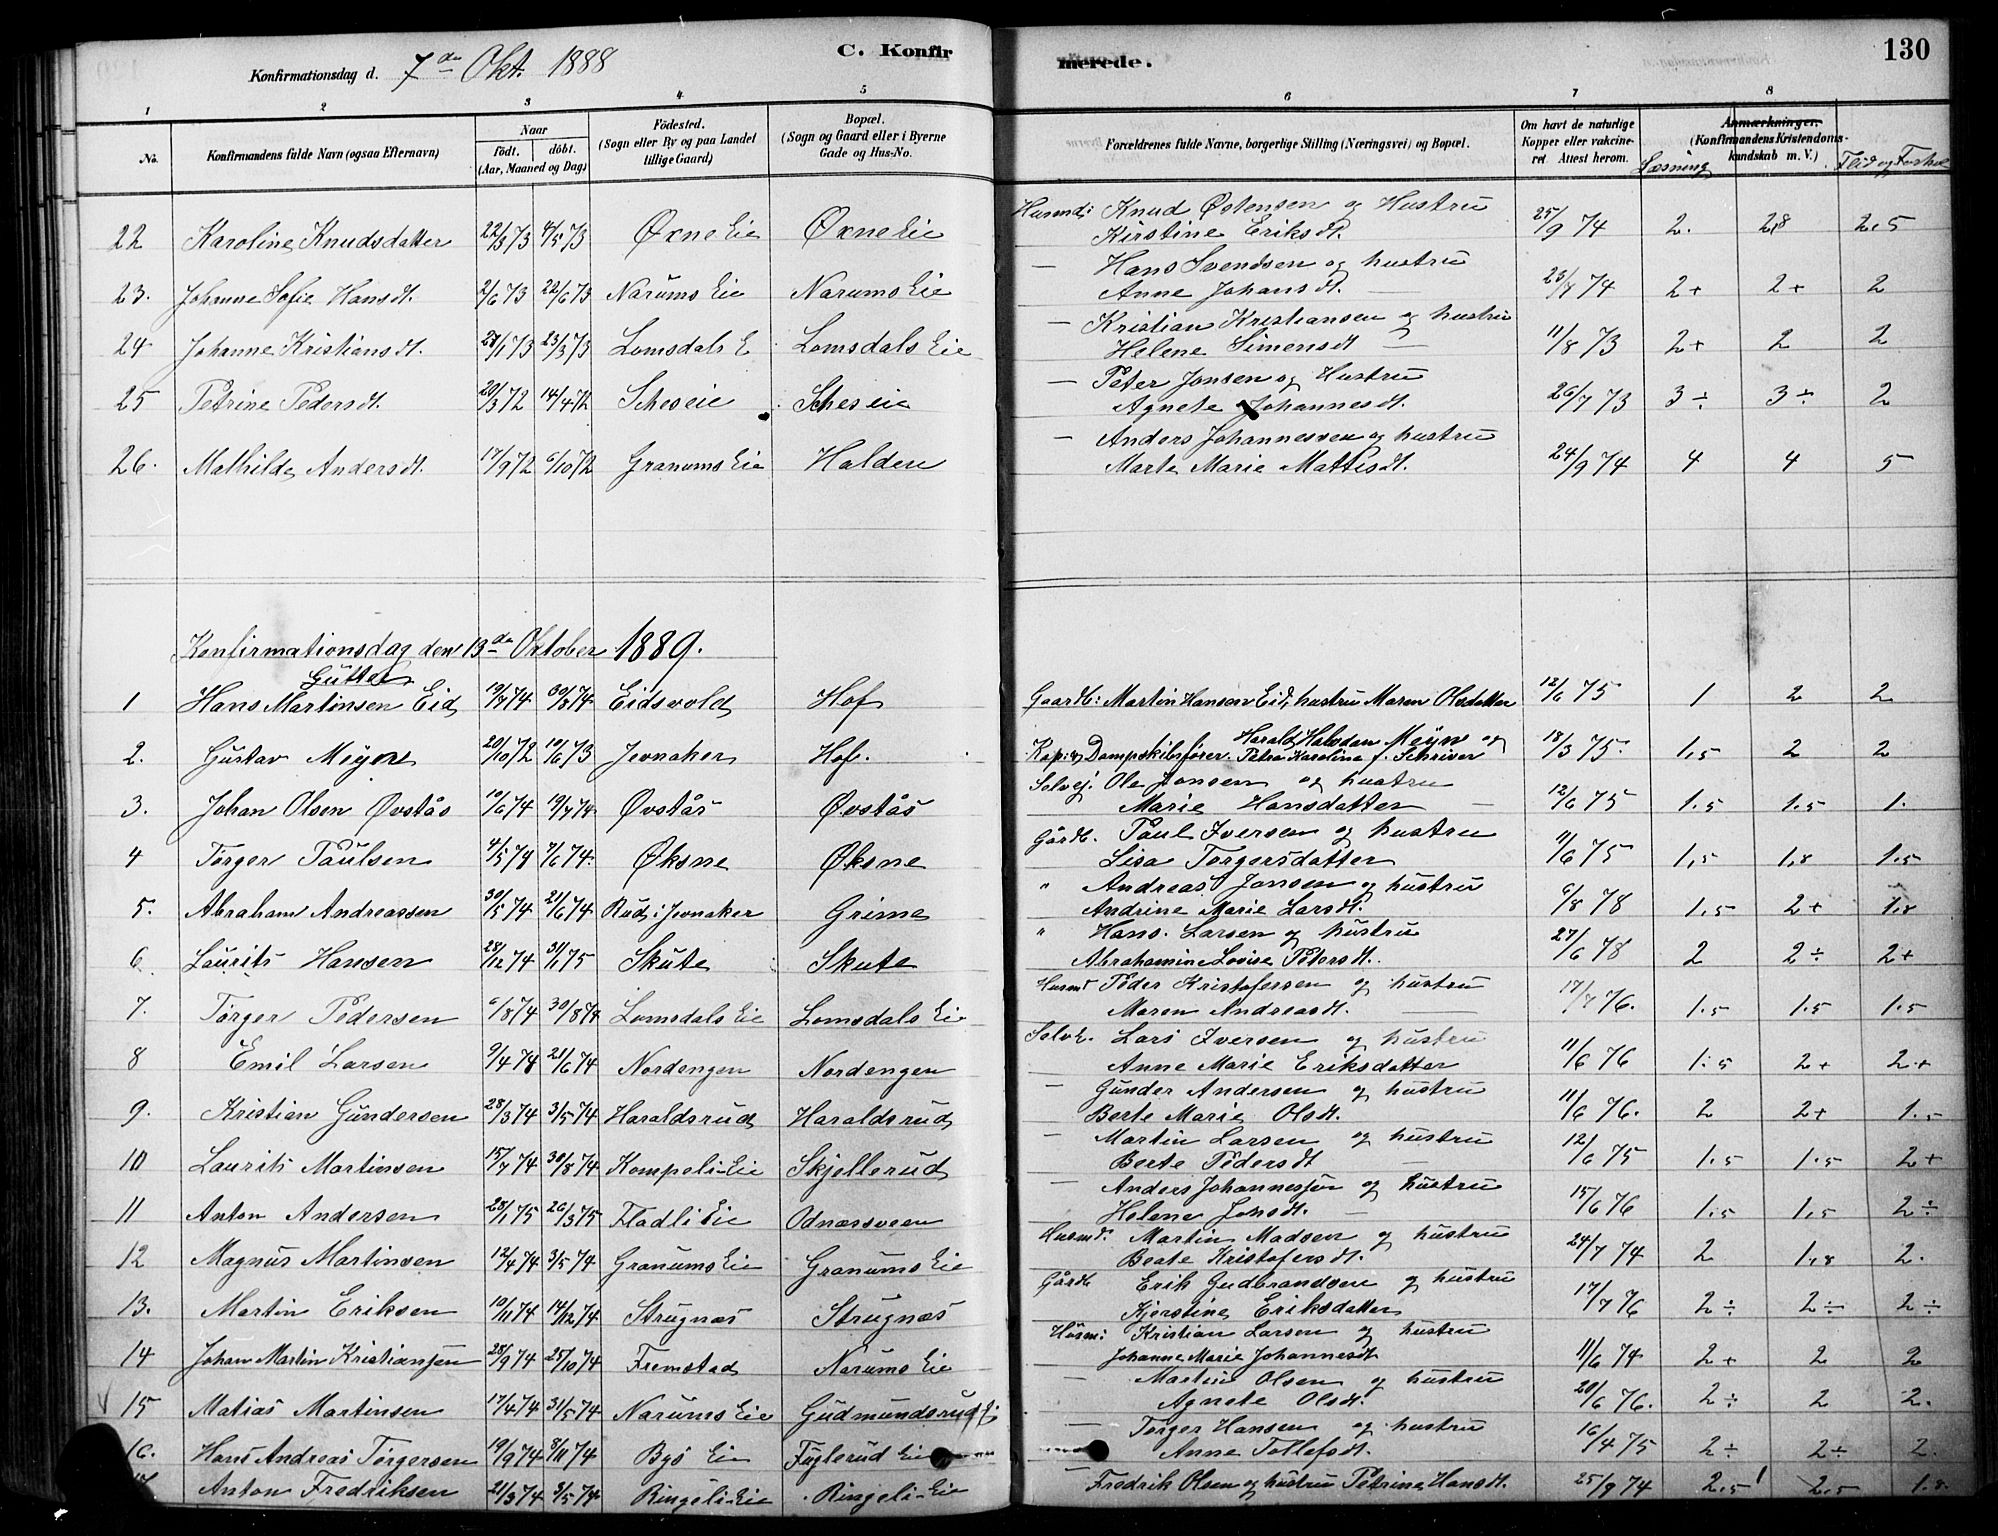 Konfirmationsdag d. 7de Okt. 1888 C. Konfirmerede. 130
1 2 3 4 5 6 7 8
No. Konfirmandens fulde Navn (ogsaa Efternavn) Naar Födt. döbt. (Aar, Maaned og Dag) Födested. (Sogn eller By og paa Landet tillige Gaard) Bopæl. (Sogn og Gaard eller i Byerne Gade og Hus-No. Forældrenes fulde Navne, borgerlige Stilling (Næringsvei) og Bopæl. Om havt de naturlige Kopper eller vakcineret. Attest herom. Anmærkninger. (Konfirmandens Kristendomskundskab m. V.) Læsning Flid og Forhol
22 Karoline Knudsdatter 22/3 73 4/5 73 Øxne Eie Øxne Eie Husmd: Knud Østensen og Hustru Kirstine Eriksdt. 25/9 74 2. 2,8 2,5
23. Johanne Sofie Hansdt. 2/6 73 22/6 73 Narums Eie Narums Eie — Hans Svendsen og hustru Anne Johansdt. 23/7 74 2+ 2+ 2
24 Johanne Kristiansdt. 28/1 73 23/3 73 Lomsdals E Lomsdals Eie — Kristian Kristiansen og hustru Helene Simensdt — 11/8 73 2+ 2 2
25 Petrine Pedersdt. 20/3 72 14/4 72 Scheseie Scheseie — Peter Jonsen og Hustru Agnete Johannesdt. 26/7 73 3÷ 3÷ 2
26. Mathilde Andersdt. 17/9 72 6/10 72 Granums Eie Halden — Anders Johannessen og hustru Marte Marie Mattisdt. 24/9 74 4 4 5
Konfirmationsdag den 13de Oktober 1889.
Gutter
1 Hans Martinsen Eid 19/7 74 30/8 74 Eidsvold Hof Gaardb: Martin Hansen Eid, hustru Maren Olsdatter 12/6 75 1 2 2
2. Gustav Meyer 20/10 72 10/6 73 Jevnaker Hof. Dampskibsfører. Harald Halvdan Meyer og Petra Karoline f. Schriver 18/3 75. 1,5 2 2
3. Johan Olsen Øvstås 10/6 74 19/7 74. Øvstås Øvstås Selvej. Ole Jonsen og hustru Marie Hansdatter — 12/6 75 1.5 1.5 1.
4 Torger Paulsen 4/5 74 7/6 74. Øksne Øksne Gårdb. Paul Iversen og hustru Lisa Torgersdatter 11/6 75 1,5 1,8 1.5
5. Abraham Andreassen 30/5 74 21/6 74 Rud i Jevnaker Grime " Andreas Jonsen og hustru Andrine Marie Larsdt. 6/8 78 1.5 2+ 1.8
6. Laurits Hansen 28/12 74 31/1 75 Skute Skute " Hans Larsen og hustru Abrahamine Lovise Pedersdt. 27/6 78 2 2÷ 2+
7. Torger Pedersen 6/8 74 30/8 74 Lomsdals Eie Lomsdals Eie Husmd Peder Kristofersen og hustru Maren Andreasdt. 17/7 76. 1.5 1.5 1.5
8 Emil Larsen 9/4 74 21/6 74 Nordengen Nordengen Selve. Lars Iversen og hustru Anne Marie Eriksdatter 11/6 76 1.5 2+ 2+
9. Kristian Gundersen 28/3 74 3/5 74 Haraldsrud Haraldsrud — Gunder Andersen og hustru Berte Marie Olsdt. 11/6 76. 2 2+ 1.5
10 Laurits Martinsen 15/7 74 30/8 74 Kompeli-Eie Skjellerud — Martin Larsen og hustru Berte Pedersdt — 12/6 75 1.5 1.5 2+
11 Anton Andersen 28/1 75 26/3 75 Fladli Eie Odnæssveen — Anders Johannessen og hustru Helene Jonsdt. — 15/6 76 1.5 1.5 2÷
12 Magnus Martinsen 12/4 74 3/5 74 Granums Eie Granums Eie Husmd: Martin Madsen og hustru Beate Kristofersdt. 24/7 74 2 1,8 2.
13. Martin Eriksen 10/11 74 14/12 74 Strugnæs Strugnæs Gårdb Erik Gudbrandsen og hustru Kjerstine Eriksdatter 17/7 76 2÷ 2÷ 2÷
14 Johan Martin Kristiansen 28/9 74 25/10 74 Fremstad Narums Eie Husm: Kristian Larsen og hustru Johanne Marie Johannesdt 11/6 74 2+ 2 2
15 Matias Martinsen 17/4 74 31/5 74 Narums Eie Gudmundsrud Ei — Martin Olsen og hustru Agnete Olsdt. 20/6 76. 2÷ 2 2.
16. Hans Andreas Torgersen 19/9 74 8/11 74 Byö Eie Fuglerud Eie — Torger Hansen og hustru Anne Tollefsdt. 16/4 75 2÷ 2÷ 2.
17. Anton Fredriksen 21/3 74 3/5 74 Ringeli-Eie Ringeli-Eie — Fredrik Olsen og hustru Petrine Hansdt. 25/9 74 2.5 2.5 1.8